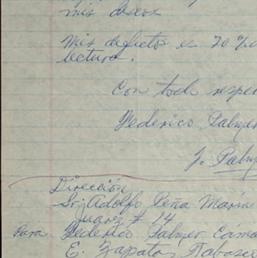 mis deseos
Mis defectos es 70 %
lectura.
Con todo
Federico Palmer
F.
Dirección
Sr. Adolfo Peña Marin
Juarez # 14
Para Federico Palmer
E. Zapata, Tabasco